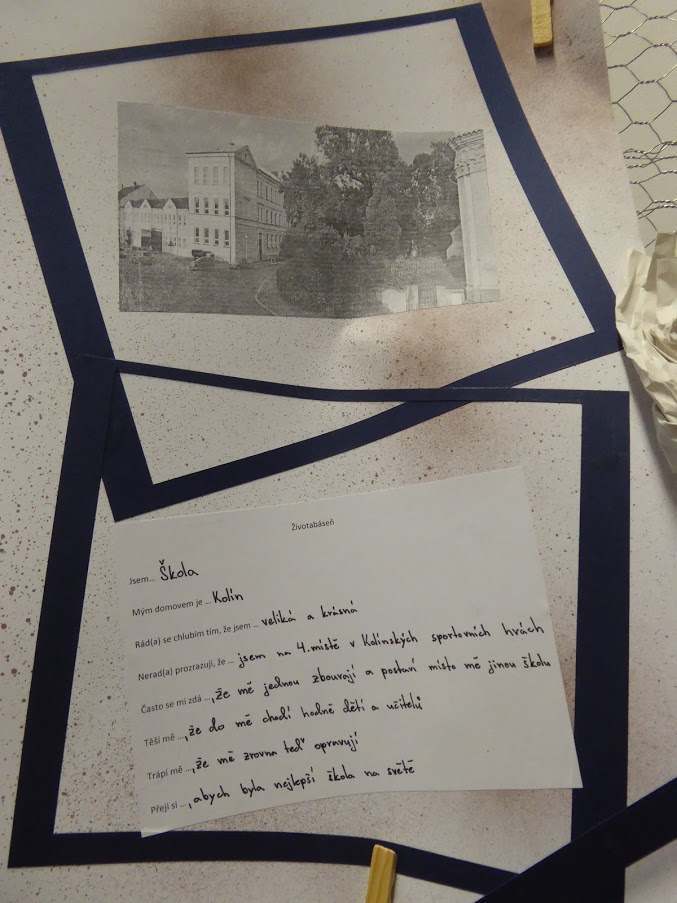 Životabáseň
Jsem... Škola
Mým domovem je ... Kolín
Rád(a) se chlubím tím, že jsem ... veliká a krásná
Nerad(a) prozrazuji, že ... jsem na 4. místě v Kolínských sportovních hrách
Často se mi zdá ..., že mě jednou zbourají a postaví místo mě jinou školu
Těší mě ..., že do mě chodí hodně dětí a učitelů
Trápí mě ..., že mě zrovna teď opravují
Přeji si ..., abych byla nejlepší škola na světě